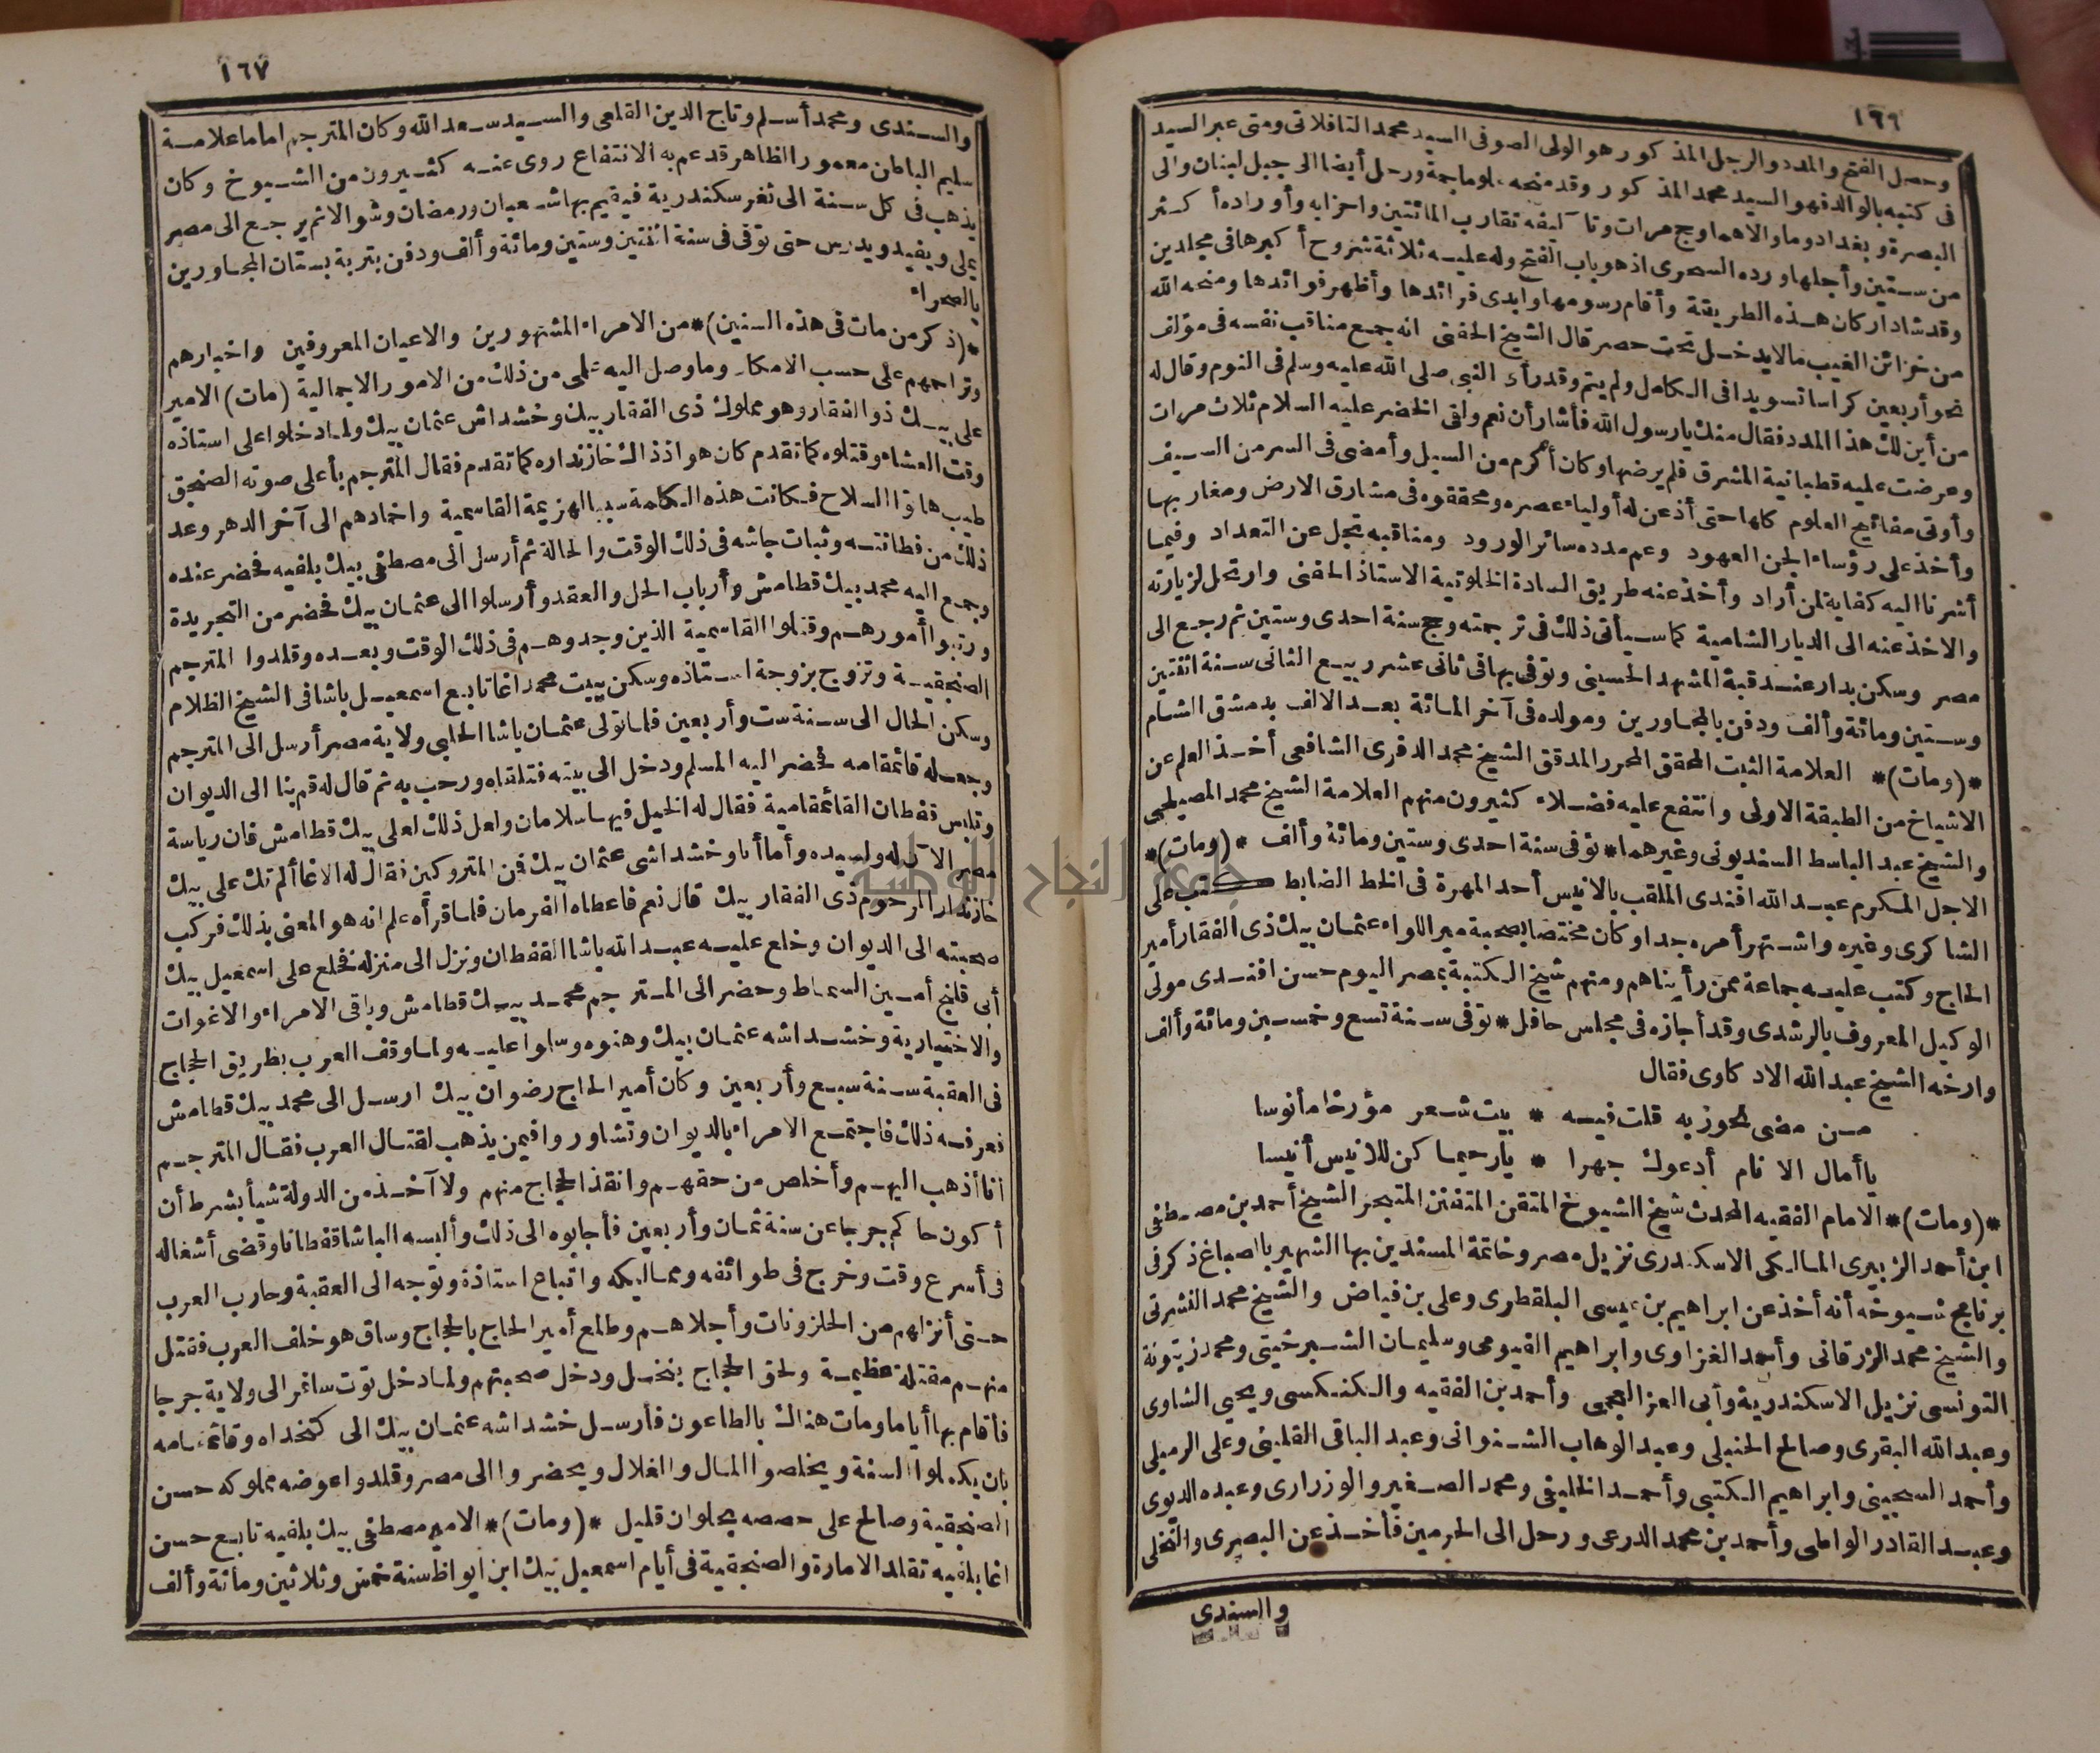 ١٦٦
وحصل الفتح والمدد والرجل المذكور هو الولى الصوفى السيد محمد التافلاتى ومتى عبر السيد
فى كتبه بالوالد فهو السيد محمد المذكور وقد منحه علوما جمة ورحل أيضا الى جبل لبنان والى
البصرة وبغداد وما والاهما وحج مرات وتآليفه تقارب المائتين وأحزابه وأوراده أكثر
من ستين وأجلها ورده السحرى اذ هو باب الفتح وله عليه ثلاثة شروح أكبرها فى مجلدين
وقد شاد أركان هذه الطريقة وأقام رسومها وأبدى فرائدها وأظهر فوائدها ومنحه الله
من خزائن الغيب مالا يدخل تحت حصر قال الشيخ الحفنى انه جمع مناقب نفسه فى مؤلف
نحو أربعين كراسا تسويدا فى الكامل ولم يتم وقد رأى النبى صلى الله عليه وسلم فى النوم وقال له
من أين لك هذا المدد فقال منك يا رسول الله فأشار أن نعم ولقى الخضر عليه السلام ثلاث مرات
وعرضت عليه قطبانية المشرق فلم يرضها وكان أكرم من السيل وأمضى فى السر من السيف
وأوتى مفاتيح العلوم كلها حتى أذعن له أولياء عصره ومحققوه فى مشارق الارض ومغاربها
وأخذ على رؤساء الجن العهود وعم مدده سائر الورود ومناقبه تجل عن التعداد وفيما
أشرنا اليه كفاية لمن أراد وأخذ عنه طريق السادة الخلوتية الاستاذ الحفنى وارتحل لزيارته
والاخذ عنه الى الديار الشامية كما سيأتى ذلك فى ترجمته وحج سنة احدى وستين ثم رجع الى
مصر وسكن بدار عند قبة المشهد الحسينى وتوفى بها فى ثانى عشر ربيع الثانى سنة اثنتين
وستين ومائة وألف ودفن بالمجاورين ومولده فى آخر المائة بعد الالف بدمشق الشام
*(ومات)* العلامة الثبت المحقق المحرر المدقق الشيخ محمد الدفرى الشافعى أخذ العلم عن
الاشياخ من الطبقة الاولى وانتفع عليه فضلاء كثيرون منهم العلامة الشيخ محمد المصيلحى
والشيخ عبد الباسط السنديونى وغيرهما * توفى سنة احدى وستين ومائة وألف *(ومات)*
الاجل المكرم عبد الله افندى الملقب بالانيس أحد المهرة فى الخط الضابط كتب على
الشاكرى وغيره واشتهر أمره جدا وكان مختصا بصحبة مير اللواء عثمان بيك ذى الفقار أمير
الحاج وكتب عليه جماعة ممن رأيناهم ومنهم شيخ الكتبة بمصر اليوم حسن افندى مولى
الوكيل المعروف بالرشدى وقد أجازه فى مجلس حافل * توفى سنة تسع وخمسين ومائة وألف
وارخه الشيخ عبد الله الادكاوى فقال
من مضى نحوزبه قلت فيه * بيت شعر مؤرخا مأنوسا
يا أمال الانام أدعوك جهرا * يا رحيما كن للانيس أنيسا
*(ومات)* الامام الفقيه المحدث شيخ الشيوخ المتقن المتفنن المتبحر الشيخ أحمد بن مصطفى
ابن أحمد الزبيرى المالكى الاسكندرى نزيل مصر وخاتمة المسندين بها الشهير بالصباغ ذكر فى
برنامج شيوخه أنه أخذ عن ابراهيم بن عيسى البلقطرى وعلى بن فياض والشيخ محمد النشرتى
والشيخ محمد الزرقانى وأحمد الغزاوى وابراهيم الفيومى وسليمان الشبرخيتى ومحمد زيتونة
التونسى نزيل الاسكندرية وأبى العز العجمى وأحمد بن الفقيه والكنكسى ويحيى الشاوى
وعبد الله البقرى وصالح الحنبلى وعبد الوهاب الشنوانى وعبد الباقى القلينى وعلى الرميلى
وأحمد السجينى وابراهيم الكتبى وأحمد الخليفى ومحمد الصغير والوزرارى وعبده الديوى
وعبد القادر الواطى وأحمد بن محمد الدرعى ورحل الى الحرمين فأخذ عن البصرى والنخلى
والسندى
١٦٧
والسندى ومحمد أسلم وتاج الدين القلعى والسيد سعد الله وكان المترجم اماما علامة
سليم الباطن معمور الظاهر قد عم به الانتفاع روى عنه كثيرون من الشيوخ وكان
يذهب فى كل سنة الى ثغر سكندرية فيقيم بها شعبان ورمضان وشوالا ثم يرجع الى مصر
يملى ويفيد ويدرس حتى توفى فى سنة اثنتين وستين ومائة وألف ودفن بتربة بستان المجاورين
بالصحراء
*(ذكر من مات فى هذه السنين)* من الامراء المشهورين والاعيان المعروفين واخبارهم
وتراجمهم على حسب الامكان وما وصل اليه علمى من ذلك من الامور الاجمالية (مات) الامير
على بيك ذو الفقار وهو مملوك ذى الفقار بيك وخشداش عثمان بيك ولما دخلوا على استاذه
وقت العشاء وقتلوه كما تقدم كان هو اذ ذاك خازنداره كما تقدم فقال المترجم بأعلى صوته الصنجق
طيب هاتوا السلاح فكانت هذه الكلمة سببا لهزيمة القاسمية واخمادهم الى آخر الدهر وعد
ذلك من فطانته وثبات جاشه فى ذلك الوقت والحالة ثم أرسل الى مصطفى بيك بلفيه فحضر عنده
وجمع اليه محمد بيك قطامش وأرباب الحل والعقد وأرسلوا الى عثمان بيك فحضر من التجريدة
ورتبوا أمورهم وقتلوا القاسمية الذين وجدوهم فى ذلك الوقت وبعده وقلدوا المترجم
الصنجقية وتزوج بزوجة استاذه وسكن ببيت محمد اغا تابع اسمعيل باشا فى الشيخ الظلام
وسكن الحال الى سنة ست وأربعين فلما تولى عثمان باشا الحلبى ولاية مصر أرسل الى المترجم
وجعله قائمقامه فحضر اليه المسلم ودخل الى بيته فتلقاه ورحب به ثم قال له قم بنا الى الديوان
وتلبس قفطان القائمقامية فقال له الخيل فيها سلامان ولعل ذلك لعلى بيك قطامش فان رياسة
مصر الآن له ولسيده وأما أنا وخشداشى عثمان بيك فمن المتروكين فقال له الاغا ألم تك على بيك
خازندار المرحوم ذى الفقار بيك قال نعم فاعطاه الفرمان فلما قرأه علم انه هو المعنى بذلك فركب
صحبته الى الديوان وخلع عليه عبد الله باشا القفطان ونزل الى منزله فخلع على اسمعيل بيك
أبى قلنج أمين السماط وحضر الى المترجم محمد بيك قطامش وباقى الامراء والاغوات
والاختيارية وخشداشه عثمان بيك وهنوه وسلوا عليه ولما وقف العرب بطريق الحجاج
فى العقبة سنة سبع وأربعين وكان أمير الحاج رضوان بيك ارسل الى محمد بيك قطامش
فعرفه ذلك فاجتمع الامراء بالديوان وتشاوروا فيمن يذهب لقتال العرب فقال المترجم
انا أذهب اليهم وأخلص من حقهم وانقذ الحجاج منهم ولا آخذ من الدولة شيأ بشرط أن
أكون حاكم جرجا عن سنة ثمان وأربعين فأجابوه الى ذلك وألبسه الباشا قفطانا وقضى أشغاله
فى أسرع وقت وخرج فى طوائفه ومماليكه واتباع استاذة وتوجه الى العقبة وحارب العرب
حتى أنزلهم من الحلزونات وأجلاهم وطلع أمير الحاج بالحجاج وساق هو خلف العرب فقتل
منهم مقتلة عظيمة ولحق الحجاج بنخل ودخل صحبتهم ولما دخل توت سافر الى ولاية جرجا
فأقام بها أياما ومات هناك بالطاعون فأرسل خشداشه عثمان بيك الى كتخداه وقائمقامه
بان يكملوا السنة ويخلصوا المال والغلال ويحضروا الى مصر وقلدوا عوضه مملوكه حسن
الصنجقية وصالح على حصصه بحلوان قليل *(ومات)* الامير مصطفى بيك بلفيه تابع حسن
اغا بلفيه تقلد الامارة والصنجقية فى أيام اسمعيل بيك ابن ايواظ سنة خمس وثلاثين ومائة وألف
جامعة النجاح الوطنية